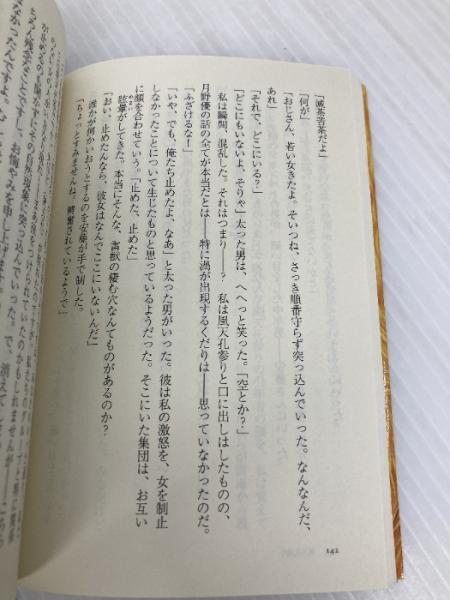 「滅茶苦茶だよ」
「何が」
「おじさん、若い女きたよ。そいつね、さっき順番守らず突っ込んでいった。なんなんだ、
あれ」
「それで、どこにいる？」
「どこにもいないよ、そりゃ」太った男は、へへっと笑った。「空とか？」
私は瞬間、混乱した。それはつまり――？　私は風天孔参りと口に出しはしたものの、
月野優の話の全てが本当だとは――特に渦が出現するくだりは――思っていなかったのだ。
「ふざけるな！」
「いや、でも、俺たち止めたよ、なあ」と太った男がいった。彼は私の激怒を、女を制止
しなかったことについて生じたものと思っているようだった。そこにいた集団は、お互い
に顔を合わせていう。「止めた、止めた」
眩暈がしてきた。本当にそんな、雷獣の棲む穴なんてものがあるのか？
めまい
「おい、止めたんなら、彼女はなんでここにいないんだ」
誰かが何かいおうとするのを安藤が手で制した。
「ちょっとすみませんね。興奮されているようで」
なかったんですよ。
242